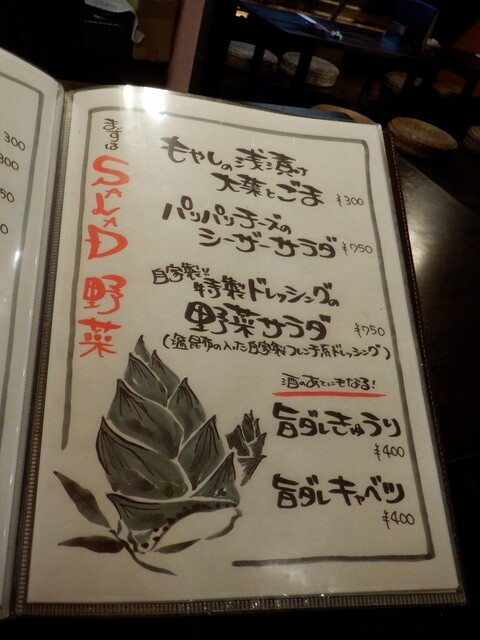 まずは
SALAD 野菜
もやしの浅漬け
大葉とごま ¥300
パリパリチーズの
シーザーサラダ ¥750
自家製!!
特製ドレッシングの
野菜サラダ ¥750
(塩昆布の入った自家製フレンチ風ドレッシング)
酒のあてにもなる!
旨ダレきゅうり
¥400
旨ダレキャベツ
¥400
300
300
50
0